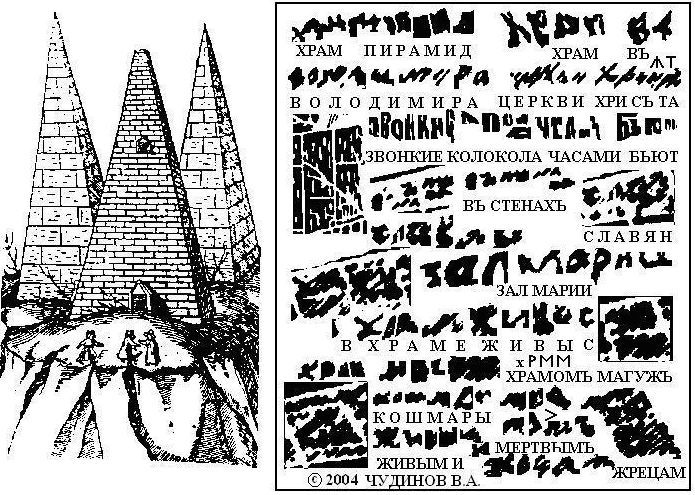 ХРАМ ПИРАМИД ХРАМ ВЪ
ѪТ
ВОЛОДИМИРА ЦЕРКВИ ХРИСЪТА
ЗВОНКИЕ КОЛОКОЛА ЧАСАМИ БЬЮТ
ВЪ СТЕНАХЪ
СЛАВЯН
ЗАЛ МАРИИ
В ХРАМЕ ЖИВЫ С
ХРАМОМЪ МАГУЖЪ
КОШМАРЫ
МЕРТВЫМЪ
ЖИВЫМ И ЖРЕЦАМ
© 2004 ЧУДИНОВ В.А.